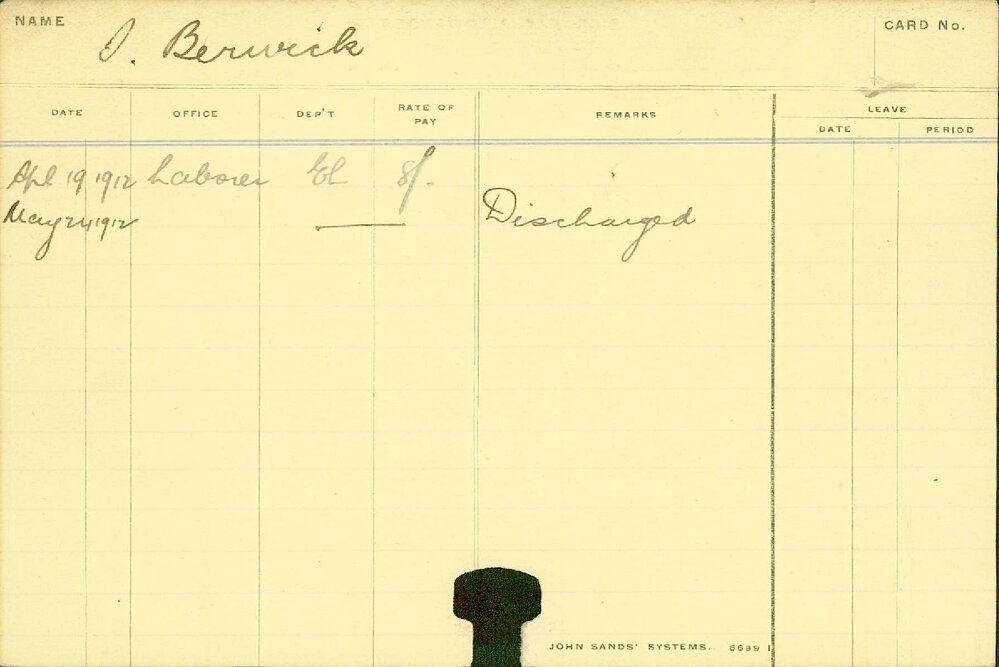 NAME J. Berwick CARD No.
DATE OFFICE DEP'T RATE OF PAY REMARKS LEAVE
DATE PERIOD
Apl 19 1912 Laborer El 8/-
May 24 1912 Discharged
JOHN SANDS' SYSTEMS. 6699